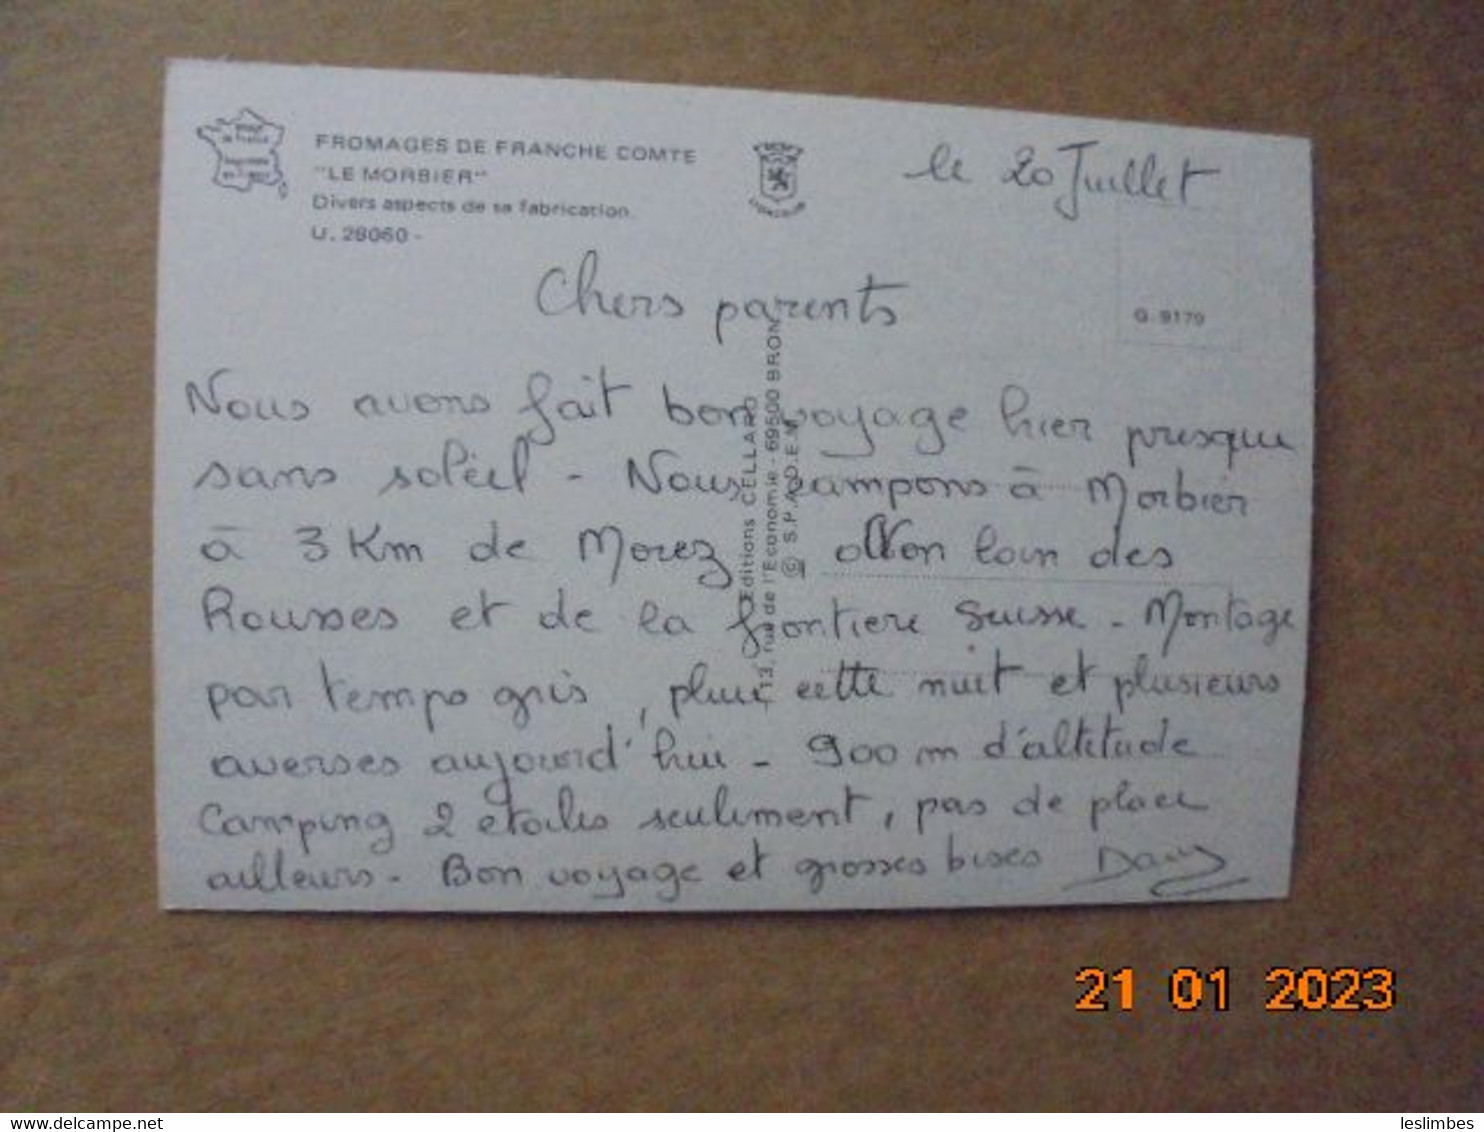 FROMAGES DE FRANCHE COMTE
"LE MORBIER"
Divers aspects de sa fabrication.
U. 28060 -
le 20 Juillet
G. 9179
Chers parents
Nous avons fait bon voyage hier presque
sans soleil - Nous campons à Morbier
à 3 Km de Morez Non loin des
Rousses et de la frontiere Suisse - Montage
par temps gris, pluie cette nuit et plusieurs
averses aujourd'hui - 900 m d'altitude
Camping 2 etoiles seulement, pas de place
ailleurs - Bon voyage et grosses bises Dany
Editions CELLARD
13, rue de l'Economie - 69500 BRON
© S.P.A.D.E.M.
21 01 2023
leslimbes